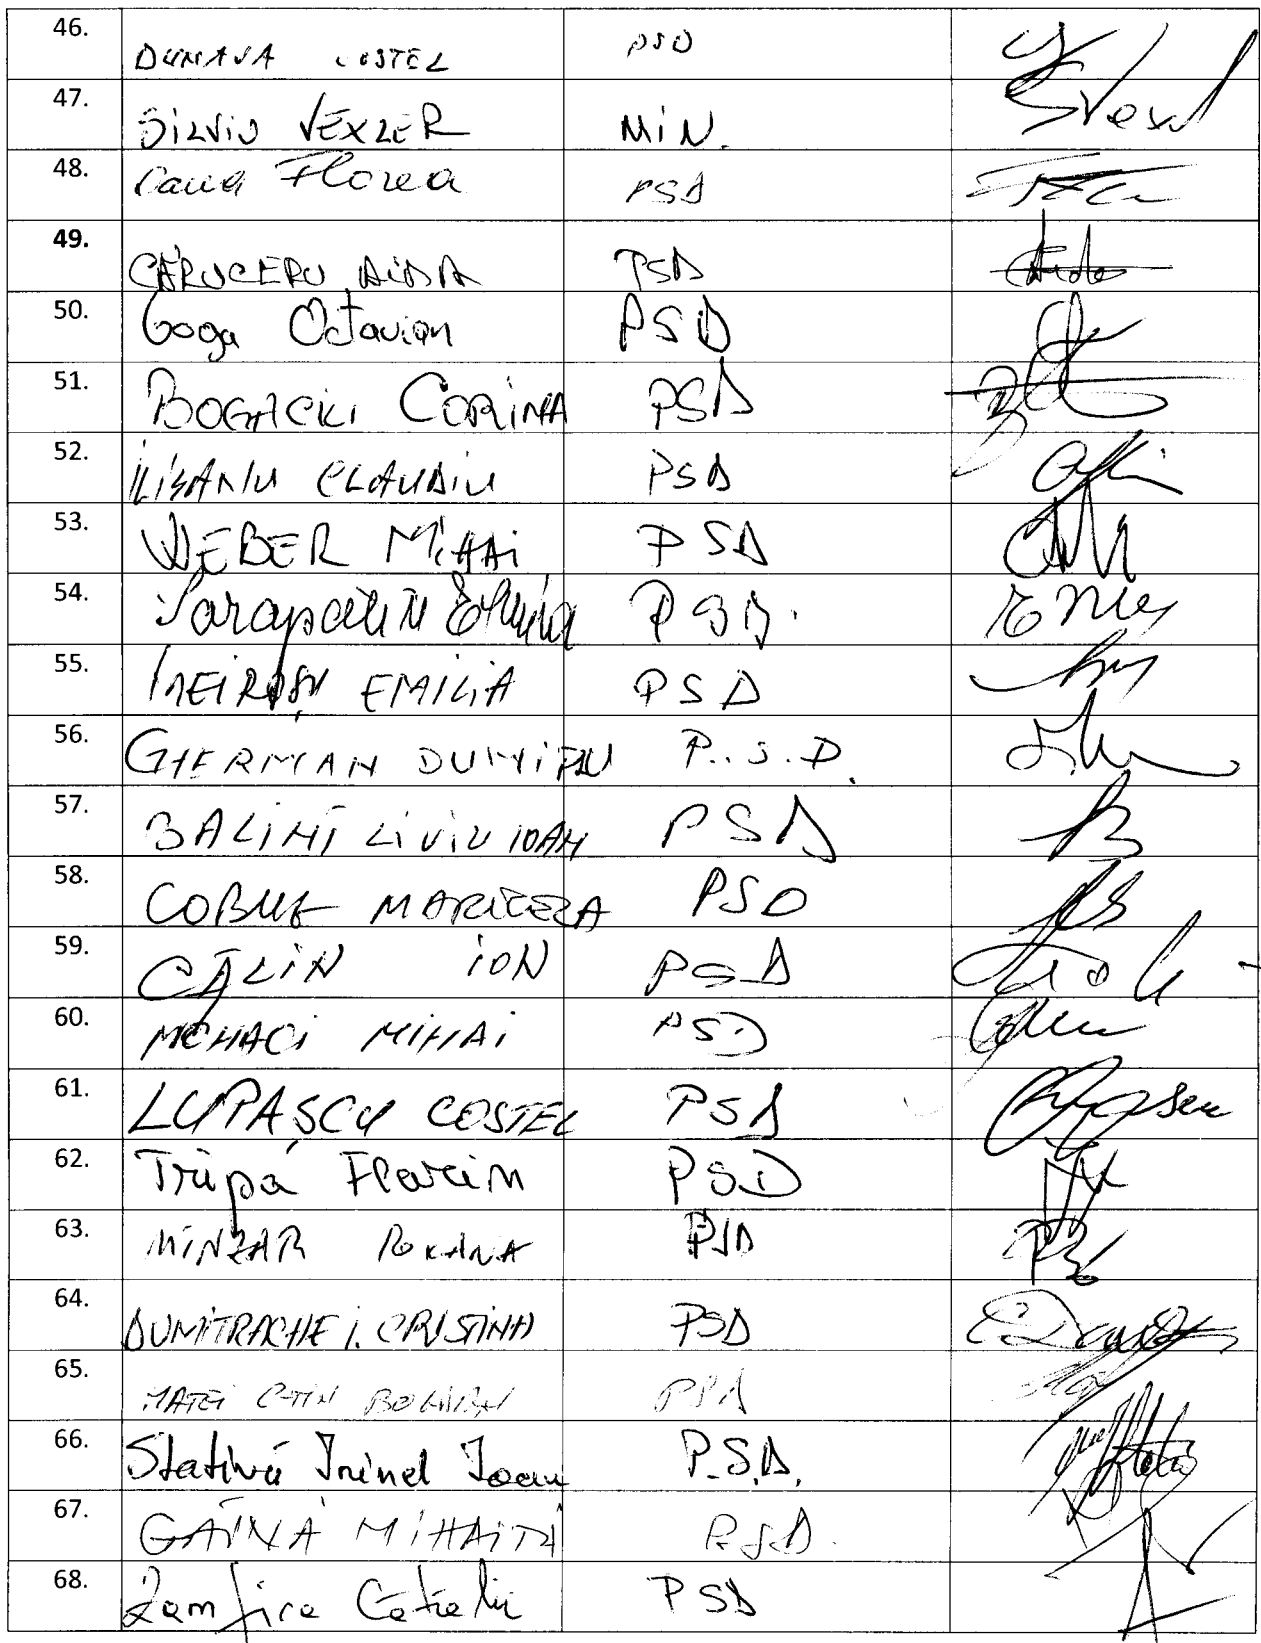 46. DUNAVA COSTEL PSD
47. SILVIU VEXLER MIN. SVexl
48. Dana Florea PSD
49. CĂRUCERU AIDA PSD
50. Goga Octavian PSD
51. BOGACIU CORINA PSD
52. ILIȘANU CLAUDIU PSD
53. WEBER MIHAI PSD
54. PSD.
55. MEIROȘU EMILIA PSD
56. GHERMAN DUMITRU P.S.D.
57. BALINT LIVIU IOAN PSD
58. COBUZ MARICELA PSD
59. CĂLIN ION PSD
60. MOHACI MIHAI PSD
61. LUPAȘCU COSTEL PSD
62. Tripa Florin PSD
63. MÎNZAR ROXANA PSD
64. DUMITRACHE I. CRISTINA PSD
65. MATEI C-TIN BOGDAN PSD
66. Stativă Irinel Ioan P.S.D.
67. GĂINĂ MIHĂIȚĂ P.S.D.
68. Zamfira Cătălin PSD